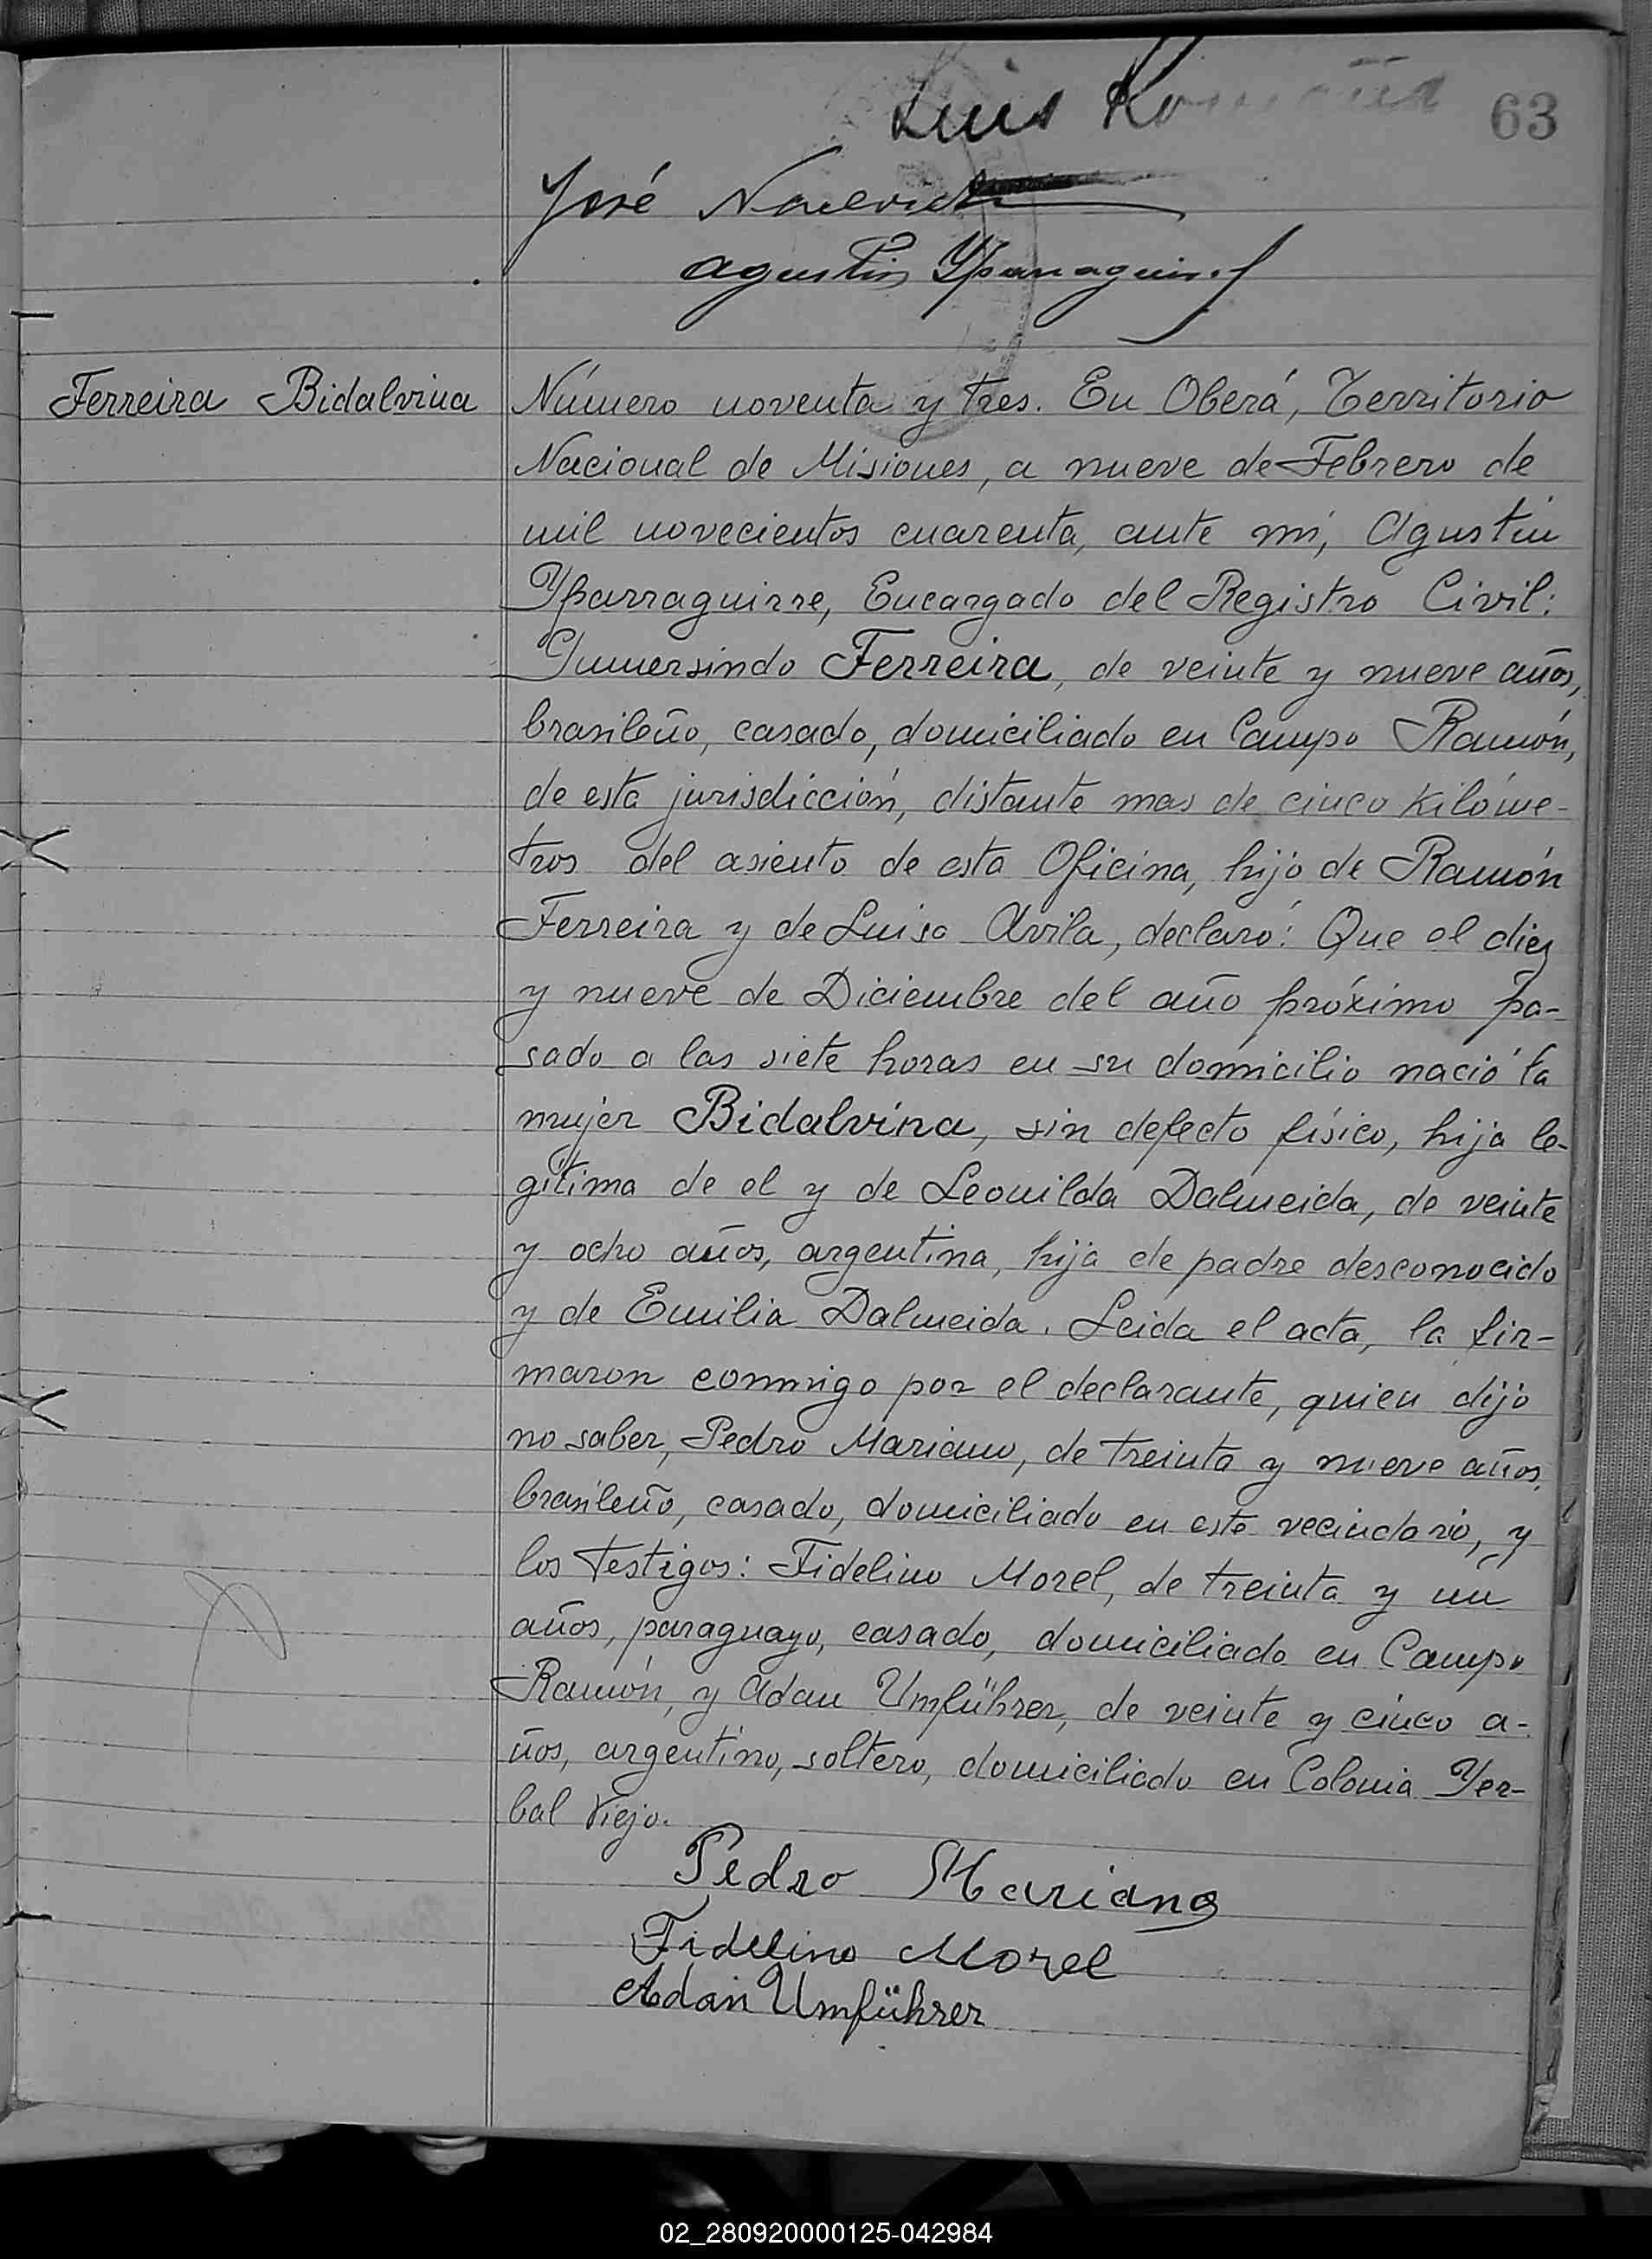 Luis
63
José
Agustin Yparraguirre
Ferreira Bidalvina
Número noventa y tres. En Oberá, Territorio
Nacional de Misiones, a nueve de Febrero de
mil novecientos cuarenta, ante mí, Agustín
Yparraguirre, Encargado del Registro Civil:
Gumersindo Ferreira, de veinte y nueve años,
brasileño, casado, domiciliado en Campo Ramón,
de esta jurisdicción, distante mas de cinco kilóme-
tros del asiento de esta Oficina, hijo de Ramón
Ferreira y de Luisa Avila, declaró: Que el diez
y nueve de Diciembre del año próximo pa-
sado a las siete horas en su domicilio nació la
mujer Bidalvina, sin defecto físico, hija le-
gítima de el y de Leonilda Dalmeida, de veinte
y ocho años, argentina, hija de padre desconocido
y de Emilia Dalmeida. Leida el acta, la fir-
maron conmigo por el declarante, quien dijo
no saber, Pedro Mariano, de treinta y nueve años,
brasileño, casado, domiciliado en este vecindario, y
los testigos: Fidelino Morel, de treinta y un
años, paraguayo, casado, domiciliado en Campo
Ramón, y Adan Umführer, de veinte y cinco a-
ños, argentino, soltero, domiciliado en Colonia Yer-
bal Viejo.
Pedro Mariano
Fidelino Morel
Adan Umführer
02_280920000125-042984